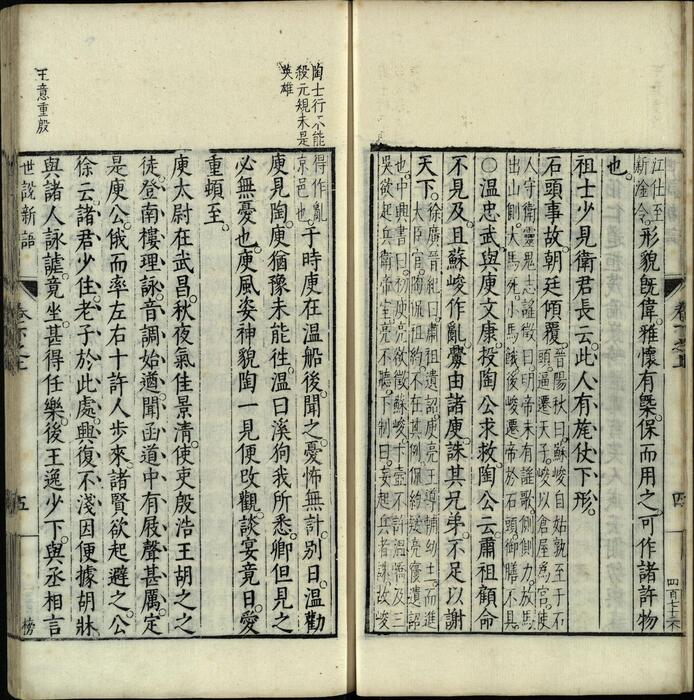 江仕至
新淦令
形貌既偉雅懷有槩保而用之可作諸許物
也
祖士少見衛君長云此人有旄仗下形
石頭事故朝廷傾覆
晉陽秋曰蘇峻自姑孰至于石
頭逼遷天子峻以倉屋爲宮使
人守衛靈鬼志謠徵曰明帝末有謠歌側側力放馬
出山側大馬死小馬餓後峻遷帝於石頭御膳不具
○溫忠武與庾文康投陶公求救陶公云肅祖顧命
不見及且蘇峻作亂釁由諸庾誅其兄弟不足以謝
天下
徐廣晉紀曰肅祖遺詔庾亮王導輔幼主而進
大臣官陶侃祖約不在其例侃約疑亮寢遺詔
也中興書曰初庾亮欲徵蘇峻卞壼不許溫嶠及三
吳欲起兵衛帝室亮不聽下制曰妄起兵者誅故峻
四
四百七三
陶士行不能
殺元規未是
英雄
得作亂
京邑也
于時庾在溫船後聞之憂怖無計別日溫勸
庾見陶庾猶豫未能徃溫曰溪狗我所悉卿但見之
必無憂也庾風姿神貌陶一見便改觀談宴竟日愛
重頓至
庾太尉在武昌秋夜氣佳景清使吏殷浩王胡之之
徒登南樓理詠音調始遒聞函道中有屐聲甚厲定
是庾公俄而率左右十許人步來諸賢欲起避之公
徐云諸君少住老子於此處興復不淺因便據胡牀
與諸人詠謔竟坐甚得任樂後王逸少下與丞相言
王意重殷
世說新語
卷下之上
五